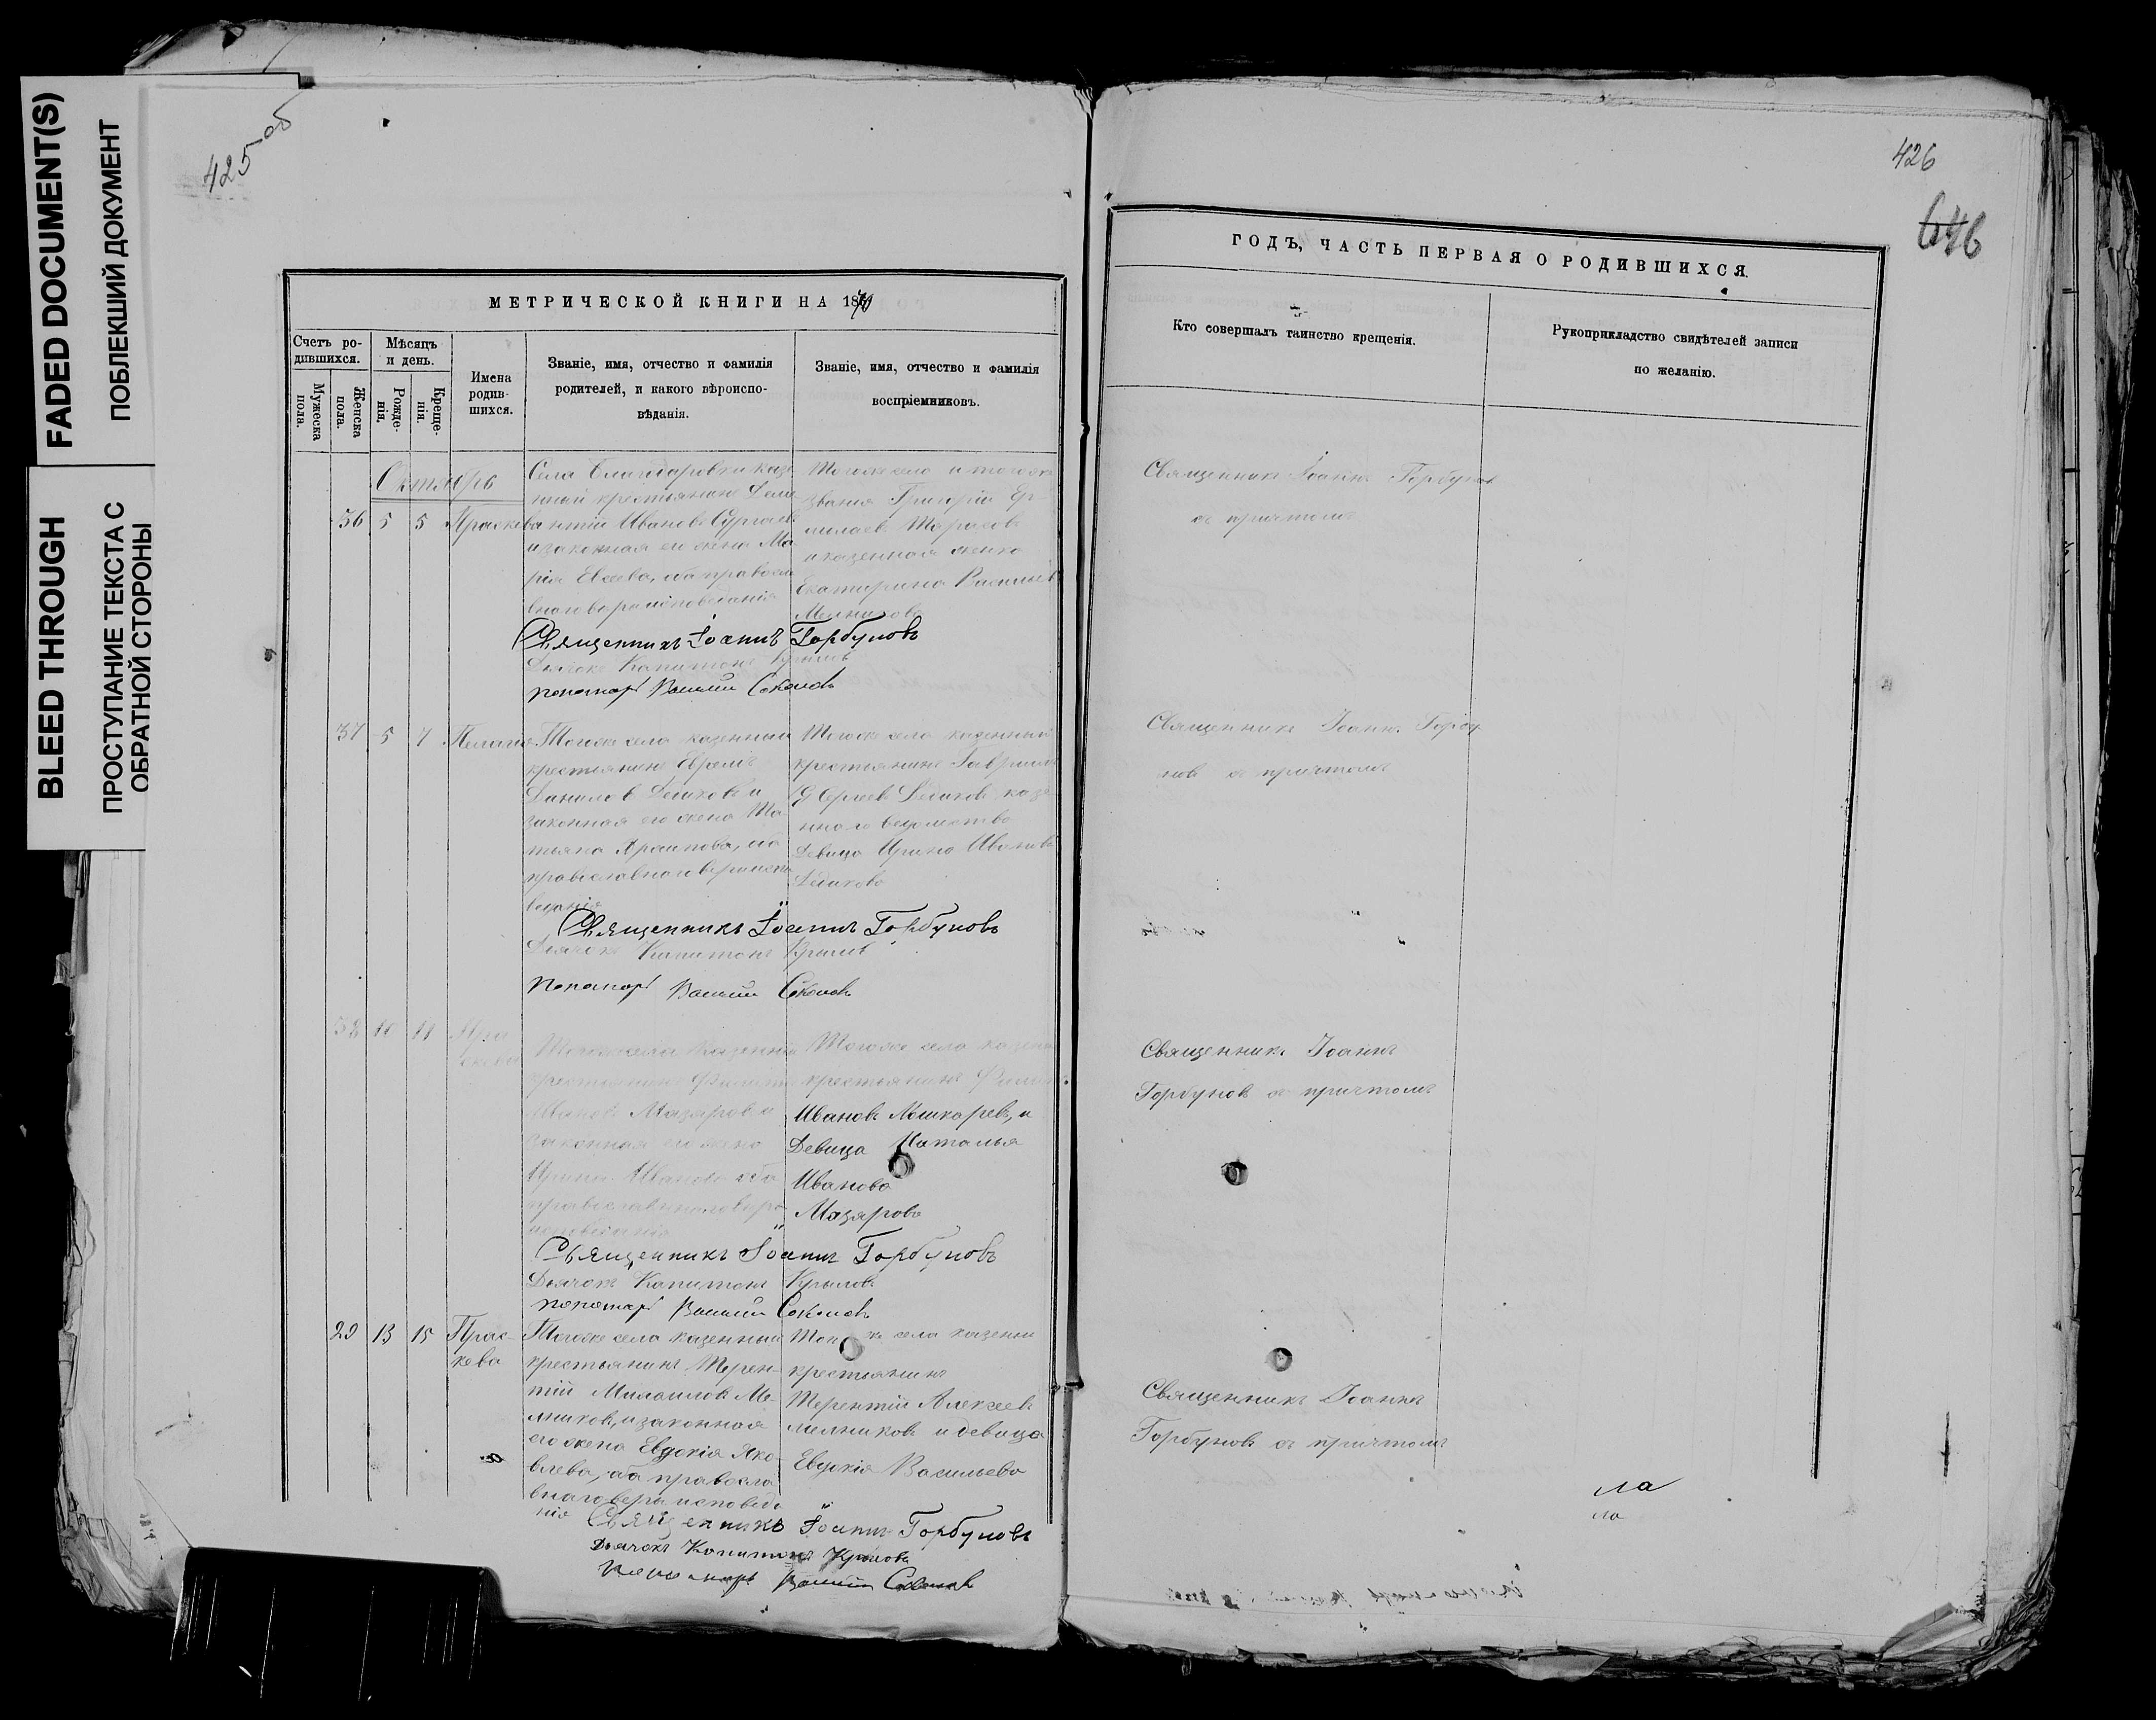 FADED DOCUMENT(S)
ПОБЛЕКШИЙ ДОКУМЕНТ
BLEED THROUGH
ПРОСТУПАНИЕ ТЕКСТА С
ОБРАТНОЙ СТОРОНЫ
425об
МЕТРИЧЕСКОЙ КНИГИ НА 1870
Счетъ ро-
дившихся.
Мужеска
пола.
Женска
пола.
Мѣсяцъ
и день.
Рожде-
нія.
Креще-
нія.
Имена
родив-
шихся.
Званіе, имя, отчество и фамилія
родителей, и какого вѣроиспо-
вѣданія.
Званіе, имя, отчество и фамилія
воспріемниковъ.
Октябрь
56 5 5 Праскева
Села Благодаровки казе
нный крестьянинъ
Ивановъ
и законная его жена Ма
рія Евсева, оба правосла
Тогоже села и тогоже
звания Григорій Ер-
милаевъ Тарасовъ
Екатерина Васильев
Мелникова
Священникъ Іоаннъ Горбуновъ
Дьячокъ Капитонъ Крыловъ
пономарь Василий Соколовъ
37 5 7
Тогоже села казенный
крестьянинъ Ефремъ
Даниловъ Дедиковъ и
законная его жена Та-
тьяна Архипова, оба
православнаго
Тогоже села казенный
крестьянинъ Гаврилъ
Сергеевъ Дедиковъ казе-
нного ведомства
Девица Ирина Иванова
Дедикова
Священникъ Іоаннъ Горбуновъ
Дьячокъ Капитонъ Крыловъ
Пономарь Василий Соколовъ
38 10 11
Тогоже села казенный
крестьянинъ Филиппъ
Ивановъ Мазяровъ и
законная его жена
Ирина Иванова оба
Тогоже села казенн
крестьянинъ
Ивановъ Мышкаревъ, и
Девица Наталья
Иванова
Мазярова
Священникъ Іоаннъ Горбуновъ
Дьячокъ Капитонъ Крыловъ
пономарь Василий Соколовъ
29 13 15 Прас-
кева
Тогоже села казенный
крестьянинъ Терен-
тий Михаиловъ Ме-
лниковъ, и законная
его жена Евдокія Яко
влева, оба правосла
внаго вера исповеда
нія
Тогоже села казенн
крестьянинъ
Терентій Алексеевъ
мелниковъ и девица
Евдокія Васильева
Священникъ Іоаннъ Горбуновъ
Дьячокъ Капитонъ Крыловъ
Пономарь Василий Соколовъ
426
646
ГОДЪ, ЧАСТЬ ПЕРВАЯ О РОДИВШИХСЯ.
Кто совершалъ таинство крещенія.
Рукоприкладство свидѣтелей записи
по желанію.
Священникъ Іоаннъ Горбуновъ
съ причтомъ
Священникъ Іоаннъ Горбу
новъ съ причтомъ
Священникъ Іоаннъ
Горбуновъ съ причтомъ
Священникъ Іоаннъ
Горбуновъ съ причтомъ
ла
ла